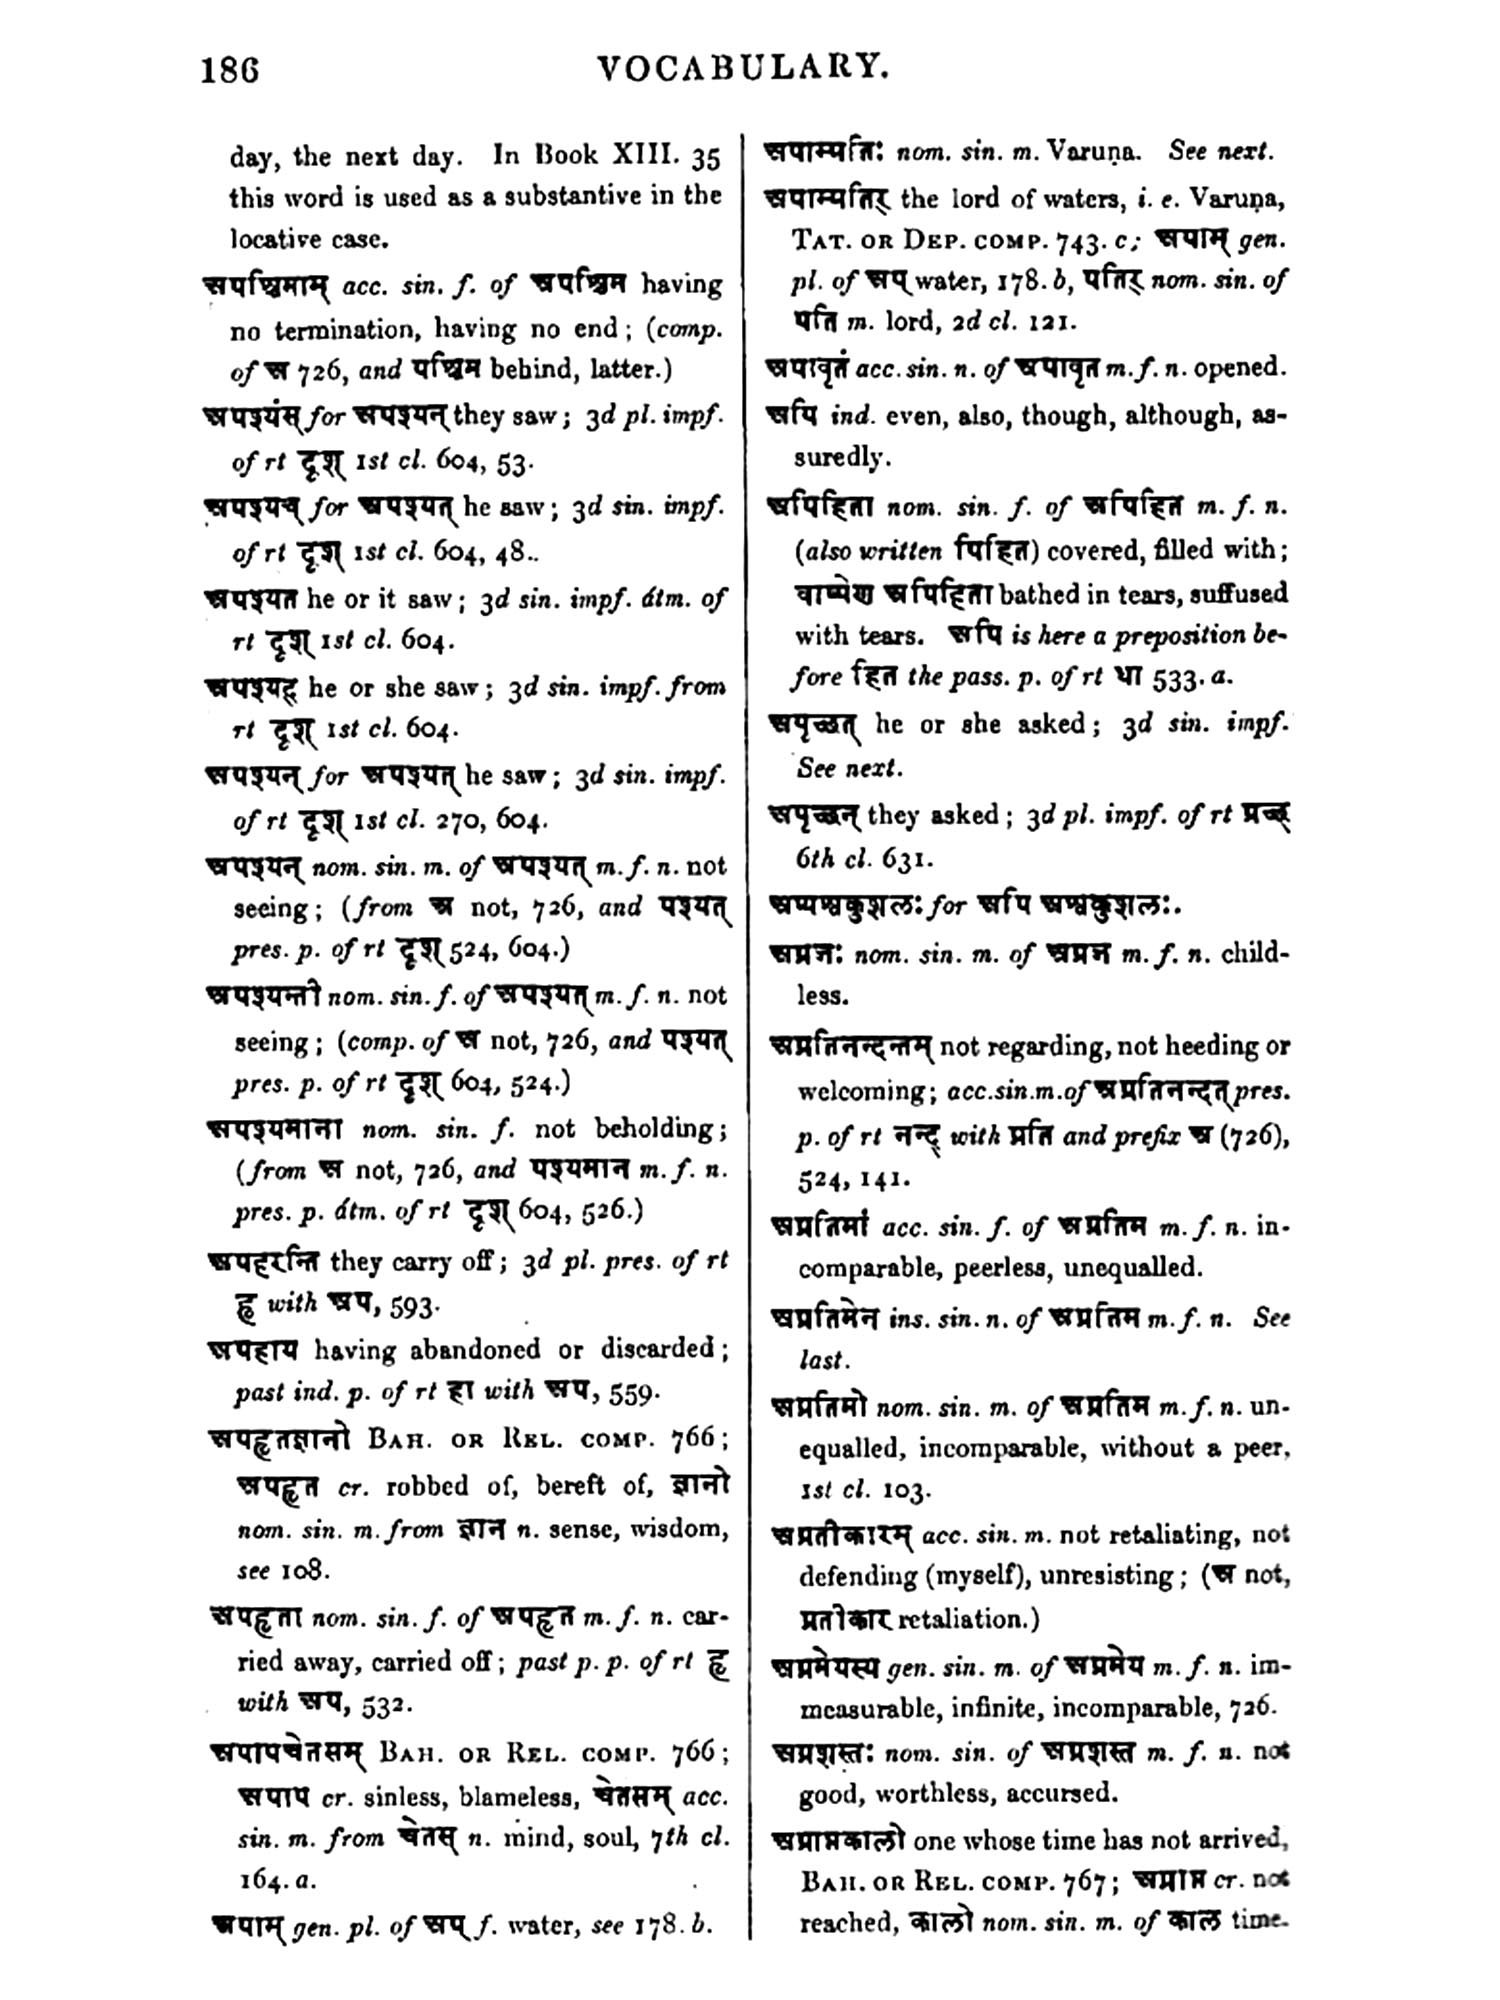 186
VOCABULARY.
day, the next day. In Book XIII. 35
this word is used as a substantive in the
locative case.
अपश्चिमाम् acc. sin. f. of अपश्चिम having
no termination, having no end; (comp.
of अ 726, and पश्चिम behind, latter.)
अपश्यंस् for अपश्यन् they saw; 3d pl. impf.
of rt दृश् 1st cl. 604, 53.
अपश्यच् for अपश्यत् he saw; 3d sin. impf.
of rt दृश् 1st cl. 604, 48..
अपश्यत he or it saw; 3d sin. impf. átm. of
rt दृश् 1st cl. 604.
अपश्यद् he or she saw; 3d sin. impf. from
rt दृश् 1st cl. 604.
अपश्यन् for अपश्यत् he saw; 3d sin. impf.
of rt दृश् 1st cl. 270, 604.
अपश्यन् nom. sin. m. of अपश्यत् m. f. n. not
seeing; (from अ not, 726, and पश्यत्
pres. p. of rt दृश् 524, 604.)
अपश्यन्ती nom. sin. f. of अपश्यत् m. f. n. not
seeing; (comp. of अ not, 726, and पश्यत्
pres. p. of rt दृश् 604, 524.)
अपश्यमाना nom. sin. f. not beholding;
(from अ not, 726, and पश्यमान m. f. n.
pres. p. átm. of rt दृश् 604, 526.)
अपहरन्ति they carry off; 3d pl. pres. of rt
हृ with अप, 593.
अपहाय having abandoned or discarded;
past ind. p. of rt हा with अप, 559.
अपहृतज्ञानो BAH. OR REL. COMP. 766;
अपहृत cr. robbed of, bereft of, ज्ञानो
nom. sin. m. from ज्ञान n. sense, wisdom,
see 108.
अपहृता nom. sin. f. of अपहृत m. f. n. car-
ried away, carried off; past p. p. of rt हृ
with अप, 532.
अपापचेतसम् BAH. OR REL. COMP. 766;
अपाप cr. sinless, blameless, चेतसम् acc.
sin. m. from चेतस् n. mind, soul, 7th cl.
164. a.
अपाम् gen. pl. of अप् f. water, see 178. b.
अपाम्पतिः nom. sin. m. Varuṇa. See next.
अपाम्पतिर् the lord of waters, i. e. Varuṇa,
TAT. OR DEP. COMP. 743. c; अपाम् gen.
pl. of अप् water, 178. b, पतिर् nom. sin. of
पति m. lord, 2d cl. 121.
अपावृतं acc. sin. n. of अपावृत m. f. n. opened.
अपि ind. even, also, though, although, as-
suredly.
अपिहिता nom. sin. f. of अपिहित m. f. n.
(also written पिहित) covered, filled with;
वाष्पेण अपिहिता bathed in tears, suffused
with tears. अपि is here a preposition be-
fore हित the pass. p. of rt धा 533. a.
अपृच्छत् he or she asked; 3d sin. impf.
See next.
अपृच्छन् they asked; 3d pl. impf. of rt प्रच्छ्
6th cl. 631.
अप्यश्वकुशलः for अपि अश्वकुशलः.
अप्रजः nom. sin. m. of अप्रज m. f. n. child-
less.
अप्रतिनन्दन्तम् not regarding, not heeding or
welcoming; acc. sin. m. of अप्रतिनन्दत् pres.
p. of rt नन्द् with प्रति and prefix अ (726),
524, 141.
अप्रतिमां acc. sin. f. of अप्रतिम m. f. n. in-
comparable, peerless, unequalled.
अप्रतिमेन ins. sin. n. of अप्रतिम m. f. n. See
last.
अप्रतिमो nom. sin. m. of अप्रतिम m. f. n. un-
equalled, incomparable, without a peer,
1st cl. 103.
अप्रतीकारम् acc. sin. m. not retaliating, not
defending (myself), unresisting; (अ not,
प्रतीकार retaliation.)
अप्रमेयस्य gen. sin. m. of अप्रमेय m. f. n. im-
measurable, infinite, incomparable, 726.
अप्रशस्तः nom. sin. of अप्रशस्त m. f. n. not
good, worthless, accursed.
अप्राप्तकालो one whose time has not arrived,
BAH. OR REL. COMP. 767; अप्राप्त cr. not
reached, कालो nom. sin. m. of काल time.